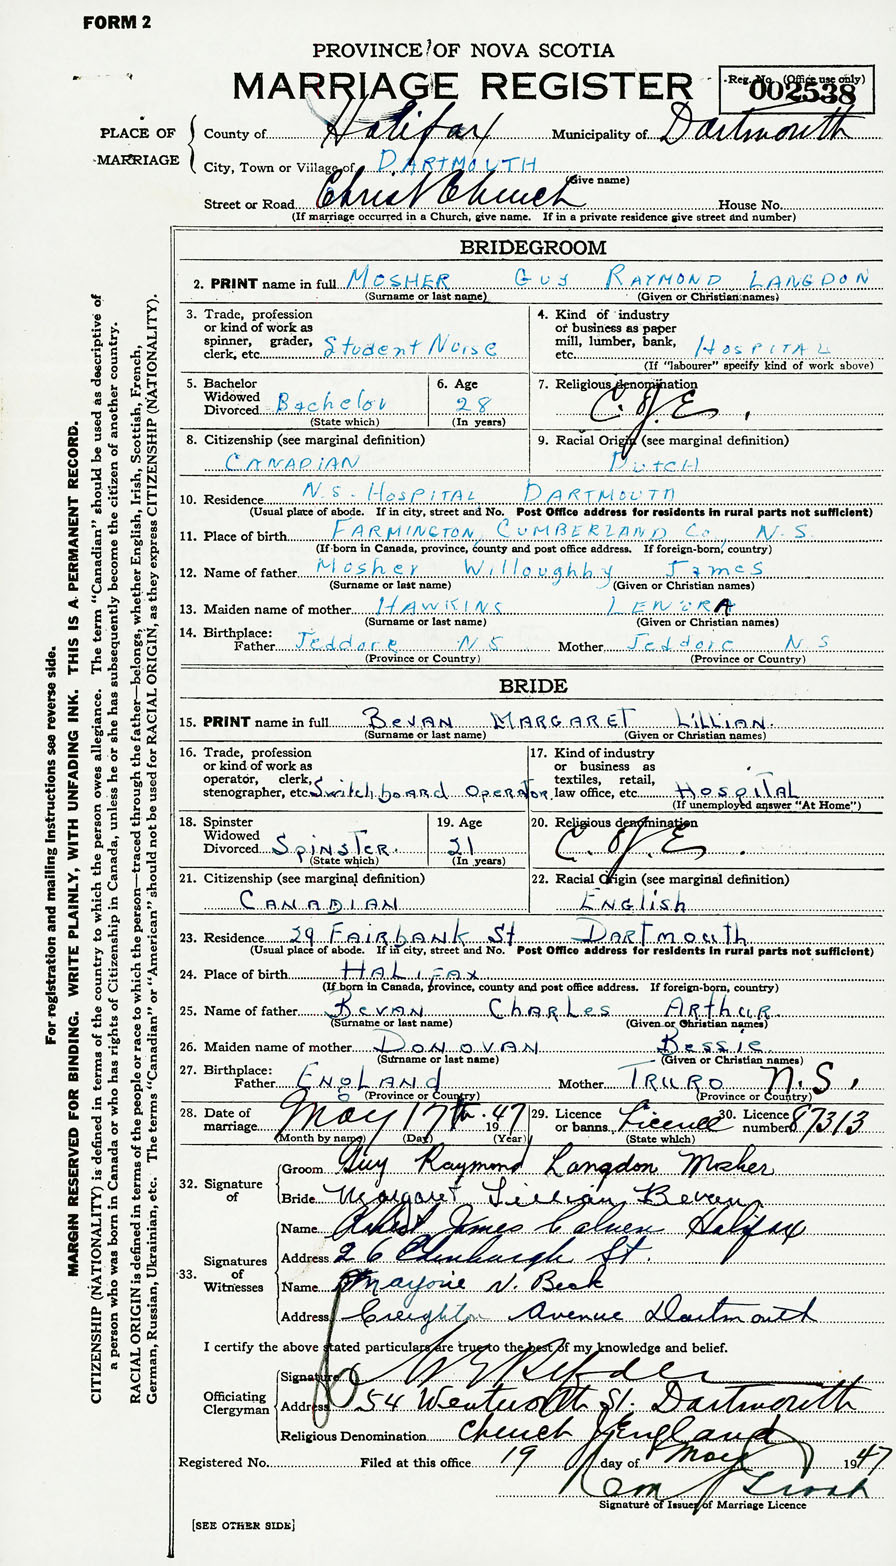 FORM 2
PROVINCE OF NOVA SCOTIA
MARRIAGE REGISTER
Reg. No. (Office use only)
002538
PLACE OF MARRIAGE
County of Halifax Municipality of Dartmouth
City, Town or Village of DARTMOUTH
(Give name)
Street or Road Christ Church House No.
(If marriage occurred in a Church, give name. If in a private residence give street and number)
BRIDEGROOM
2. PRINT name in full MOSHER GUY RAYMOND LANGDON
(Surname or last name) (Given or Christian names)
3. Trade, profession or kind of work as spinner, grader, clerk, etc. Student Nurse
4. Kind of industry or business as paper mill, lumber, bank, etc. HOSPITAL
(If "labourer" specify kind of work above)
5. Bachelor Widowed Divorced Bachelor
(State which)
6. Age 28
(In years)
7. Religious denomination C. of E.
8. Citizenship (see marginal definition)
CANADIAN
9. Racial Origin (see marginal definition)
DUTCH
10. Residence N.S. HOSPITAL DARTMOUTH
(Usual place of abode. If in city, street and No. Post Office address for residents in rural parts not sufficient)
11. Place of birth FARMINGTON, CUMBERLAND Co, N.S.
(If born in Canada, province, county and post office address. If foreign-born, country)
12. Name of father Mosher Willoughby James
(Surname or last name) (Given or Christian names)
13. Maiden name of mother HAWKINS LENORA
(Surname or last name) (Given or Christian names)
14. Birthplace:
Father Jeddore N S Mother Jeddore N S
(Province or Country) (Province or Country)
BRIDE
15. PRINT name in full BEVAN MARGARET LILLIAN.
(Surname or last name) (Given or Christian names)
16. Trade, profession or kind of work as operator, clerk, stenographer, etc. Switchboard Operator
17. Kind of industry or business as textiles, retail, law office, etc. HOSPITAL
(If unemployed answer "At Home")
18. Spinster Widowed Divorced SPINSTER.
(State which)
19. Age 21
(In years)
20. Religious denomination
C. of E.
21. Citizenship (see marginal definition)
CANADIAN
22. Racial Origin (see marginal definition)
English
23. Residence 29 Fairbank St Dartmouth
(Usual place of abode. If in city, street and No. Post Office address for residents in rural parts not sufficient)
24. Place of birth HALIFAX
(If born in Canada, province, county and post office address. If foreign-born, country)
25. Name of father BEVAN CHARLES ARTHUR
(Surname or last name) (Given or Christian names)
26. Maiden name of mother DONOVAN BESSIE
(Surname or last name) (Given or Christian names)
27. Birthplace:
Father ENGLAND Mother TRURO N.S.
(Province or Country) (Province or Country)
28. Date of marriage May 17th 1947
(Month by name) (Day) (Year)
29. Licence or banns Licence
(State which)
30. Licence number 87313
32. Signature of
Groom Guy Raymond Langdon Mosher
Bride Margaret Lillian Bevan
33. Signatures of Witnesses
Name James Halifax
Address 26 Edinburgh St.
Name Marjorie V. Beck
Address Creighton Avenue Dartmouth
I certify the above stated particulars are true to the best of my knowledge and belief.
Officiating Clergyman
Signature
Address 54 Wentworth St. Dartmouth
Religious Denomination Church of England
Registered No. Filed at this office 19 day of May 1947
Signature of Issuer of Marriage Licence
[SEE OTHER SIDE]
For registration and mailing instructions see reverse side.
MARGIN RESERVED FOR BINDING. WRITE PLAINLY, WITH UNFADING INK. THIS IS A PERMANENT RECORD.
CITIZENSHIP (NATIONALITY) is defined in terms of the country to which the person owes allegiance. The term "Canadian" should be used as descriptive of
a person who was born in Canada or who has rights of Citizenship in Canada, unless he or she has subsequently become the citizen of another country.
RACIAL ORIGIN is defined in terms of the people or race to which the person—traced through the father—belongs, whether English, Irish, Scottish, French,
German, Russian, Ukrainian, etc. The terms "Canadian" or "American" should not be used for RACIAL ORIGIN, as they express CITIZENSHIP (NATIONALITY).